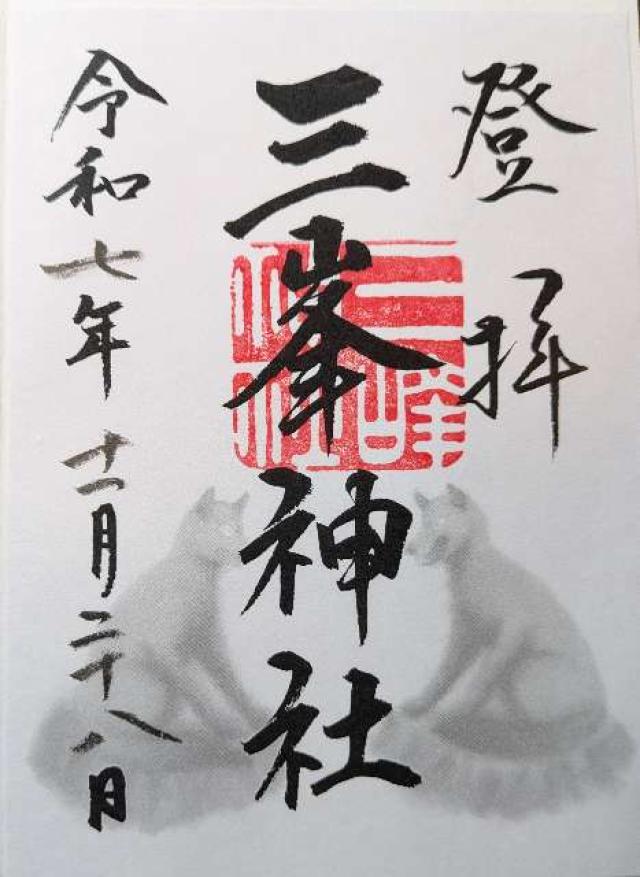 登拝
三峯神社
三峰
神社
令和七年十一月二十八日